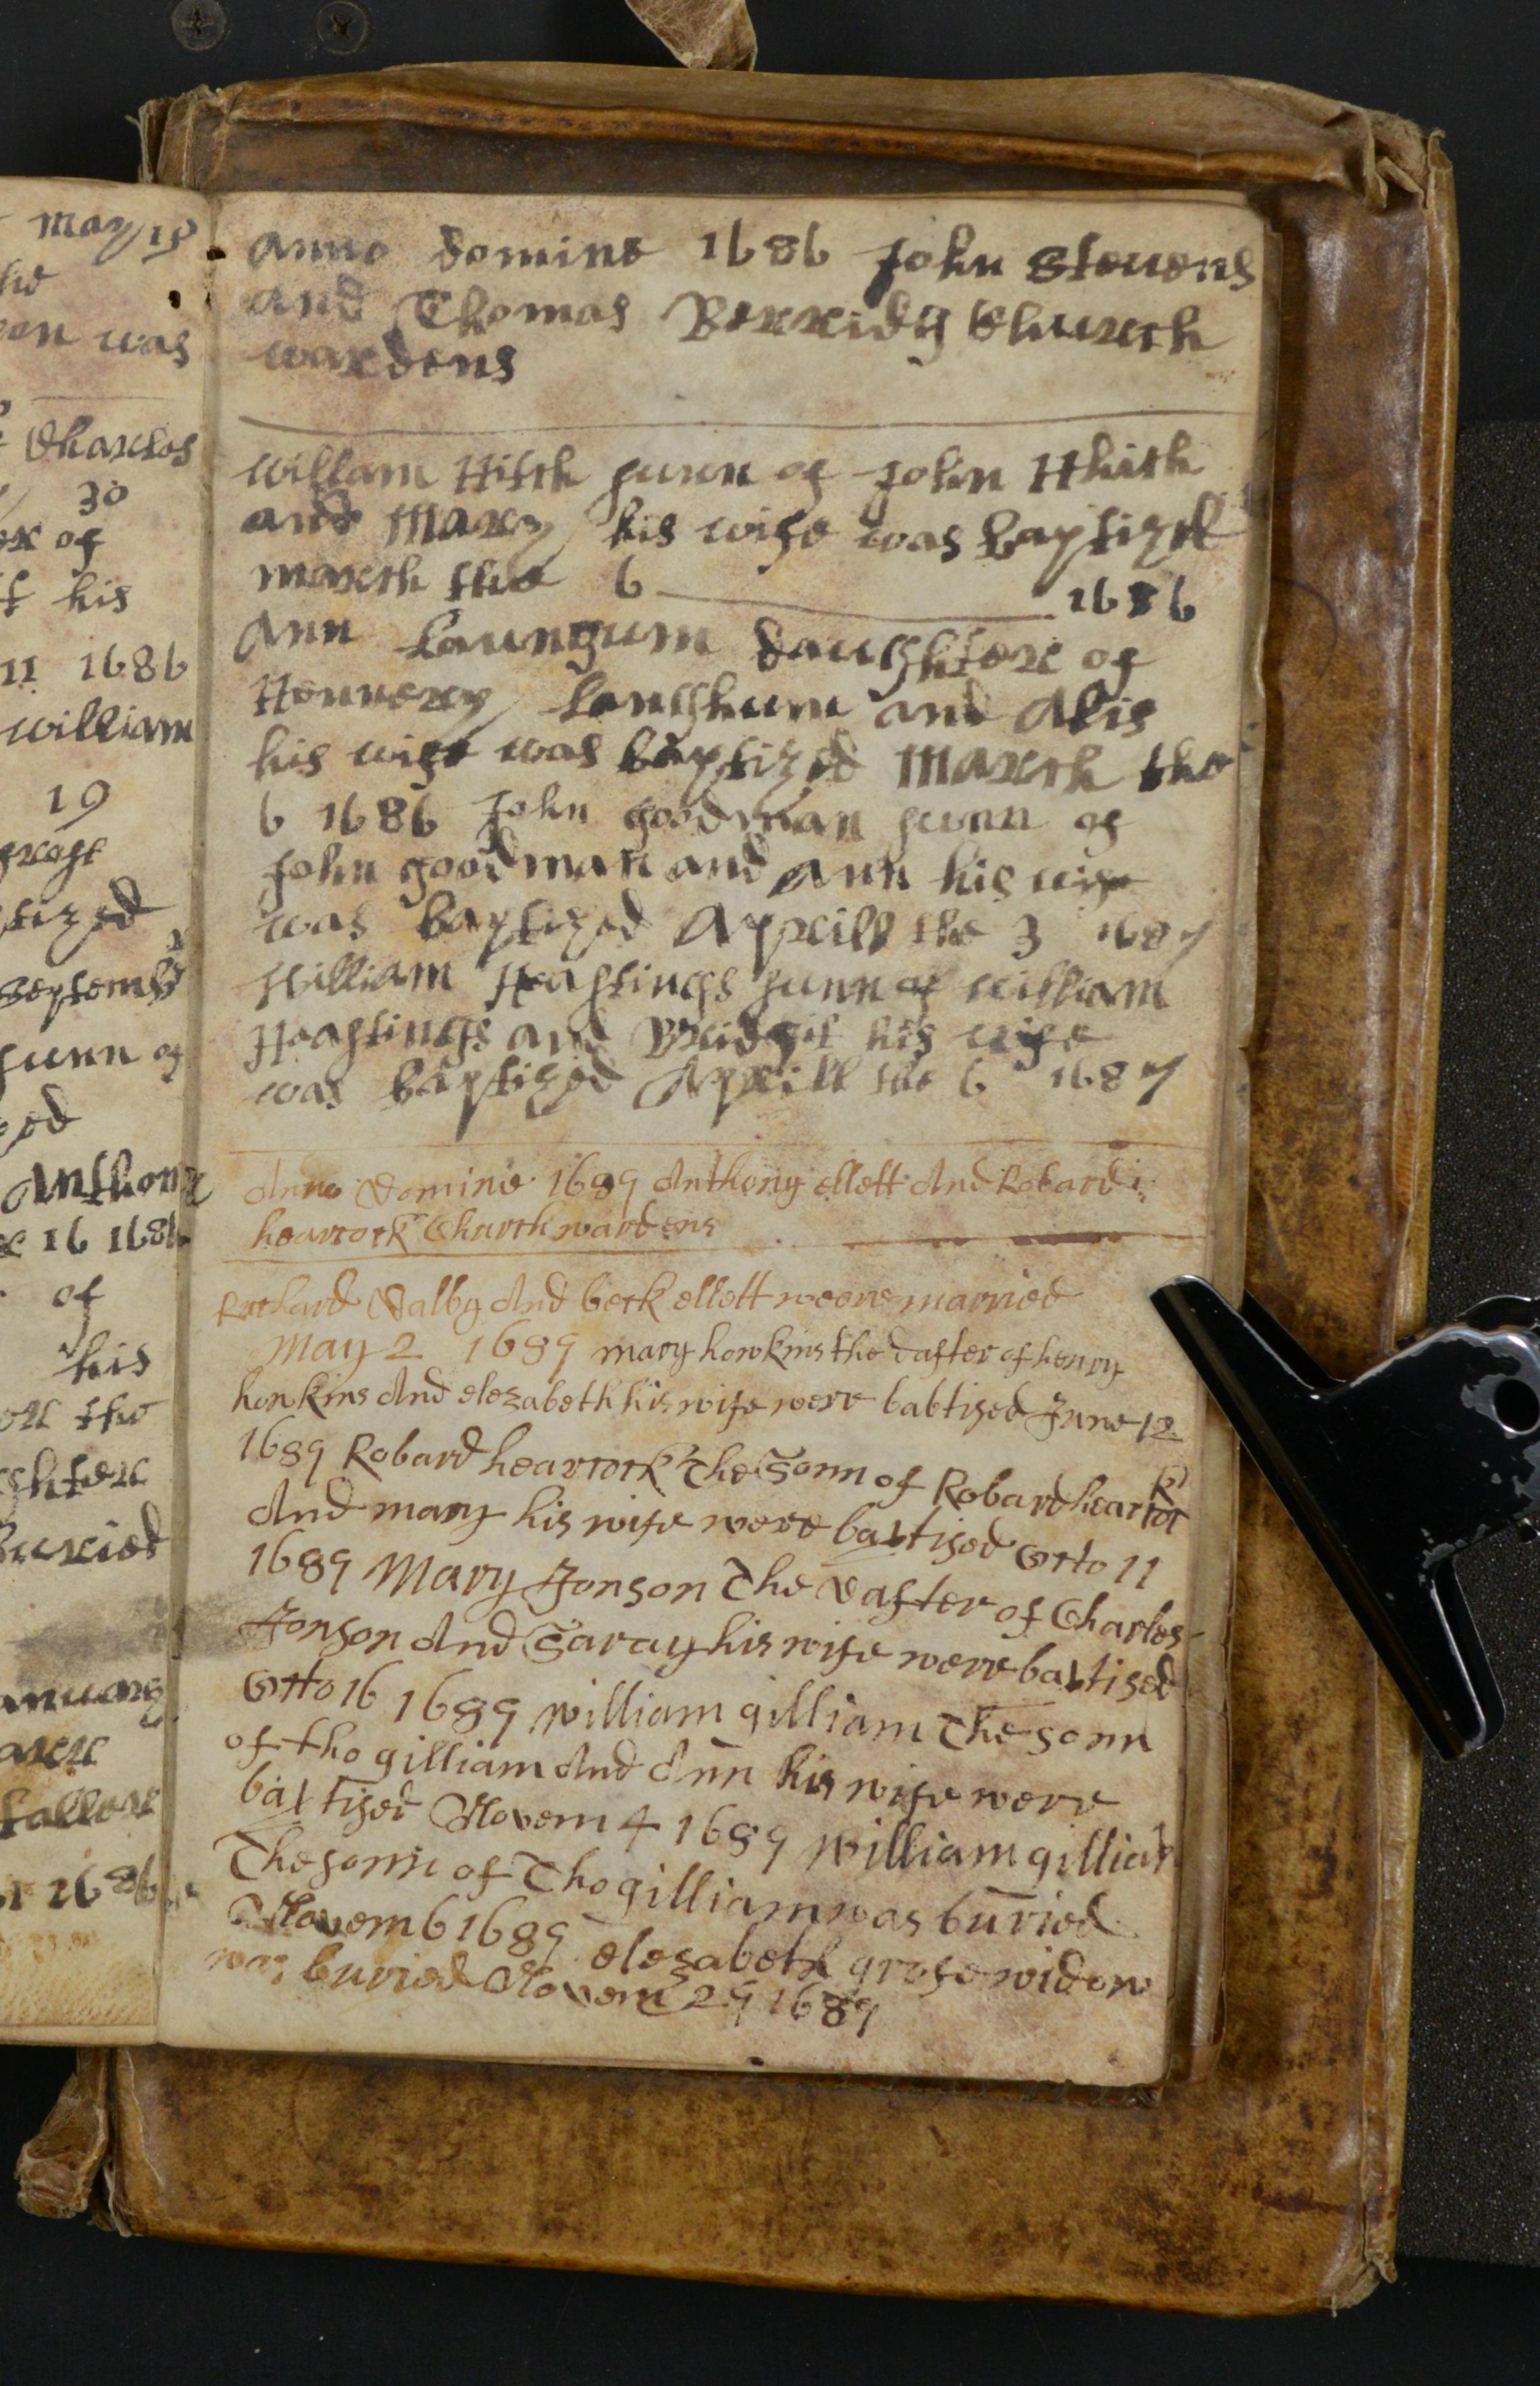 May 18
he
on was
Charlos
30
er of
f his
11 1686
william
19
grose
tized
Septemb
sunn of
ed
Anthony
16 1686
of
his
on the
ghter
Buried
anuary
faller
1686
Anno Domine 1686 John Stevens
and Thomas Berridg Church
wardens
Willam Hifth sunn of John Hhith
and Mary his wife was baptizd
march the 6 1686
Ann Laungum Daughter of
Hennery Langhum and Alis
his wife was baptized March the
6 1686 John goodman sunn of
John goodman and Ann his wife
was baptized Aprill the 3 1687
William Heastings sunn of william
Heastings and Bridgit his wife
was baptized Aprill the 6 1687
Anno Domine 1689 Anthony ellett And Robard
hearcock Church wardens
Richard Dalby And beck ellett weere married
May 2 1689 mary howkins the dafter of henry
honkins And elezabeth his wife were babtised June 12
1689 Robard hearcock The Sonn of Robard hearcock
And mary his wife were baptised Octo 11
1689 Mary Jonson The Dafter of Charles
Jonson And Saray his wife were baptised
Octo 16 1689 William gilliam The sonn
of tho gilliam And Ann his wife were
baptised Novem 4 1689 William gilliam
The sonn of Tho gilliam was buried
Novem 6 1689 elezabeth grose widow
was buried Novem 29 1689